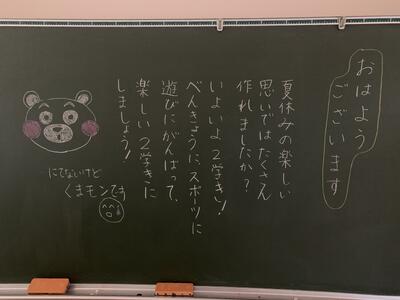 おはよう
ございます
夏休みの楽しい
思いではたくさん
作れましたか？
いよいよ2学き！
べんきょうに、スポーツに
遊びにがんばって、
楽しい2学きに
しましょう！
にてないけど
くまモンです